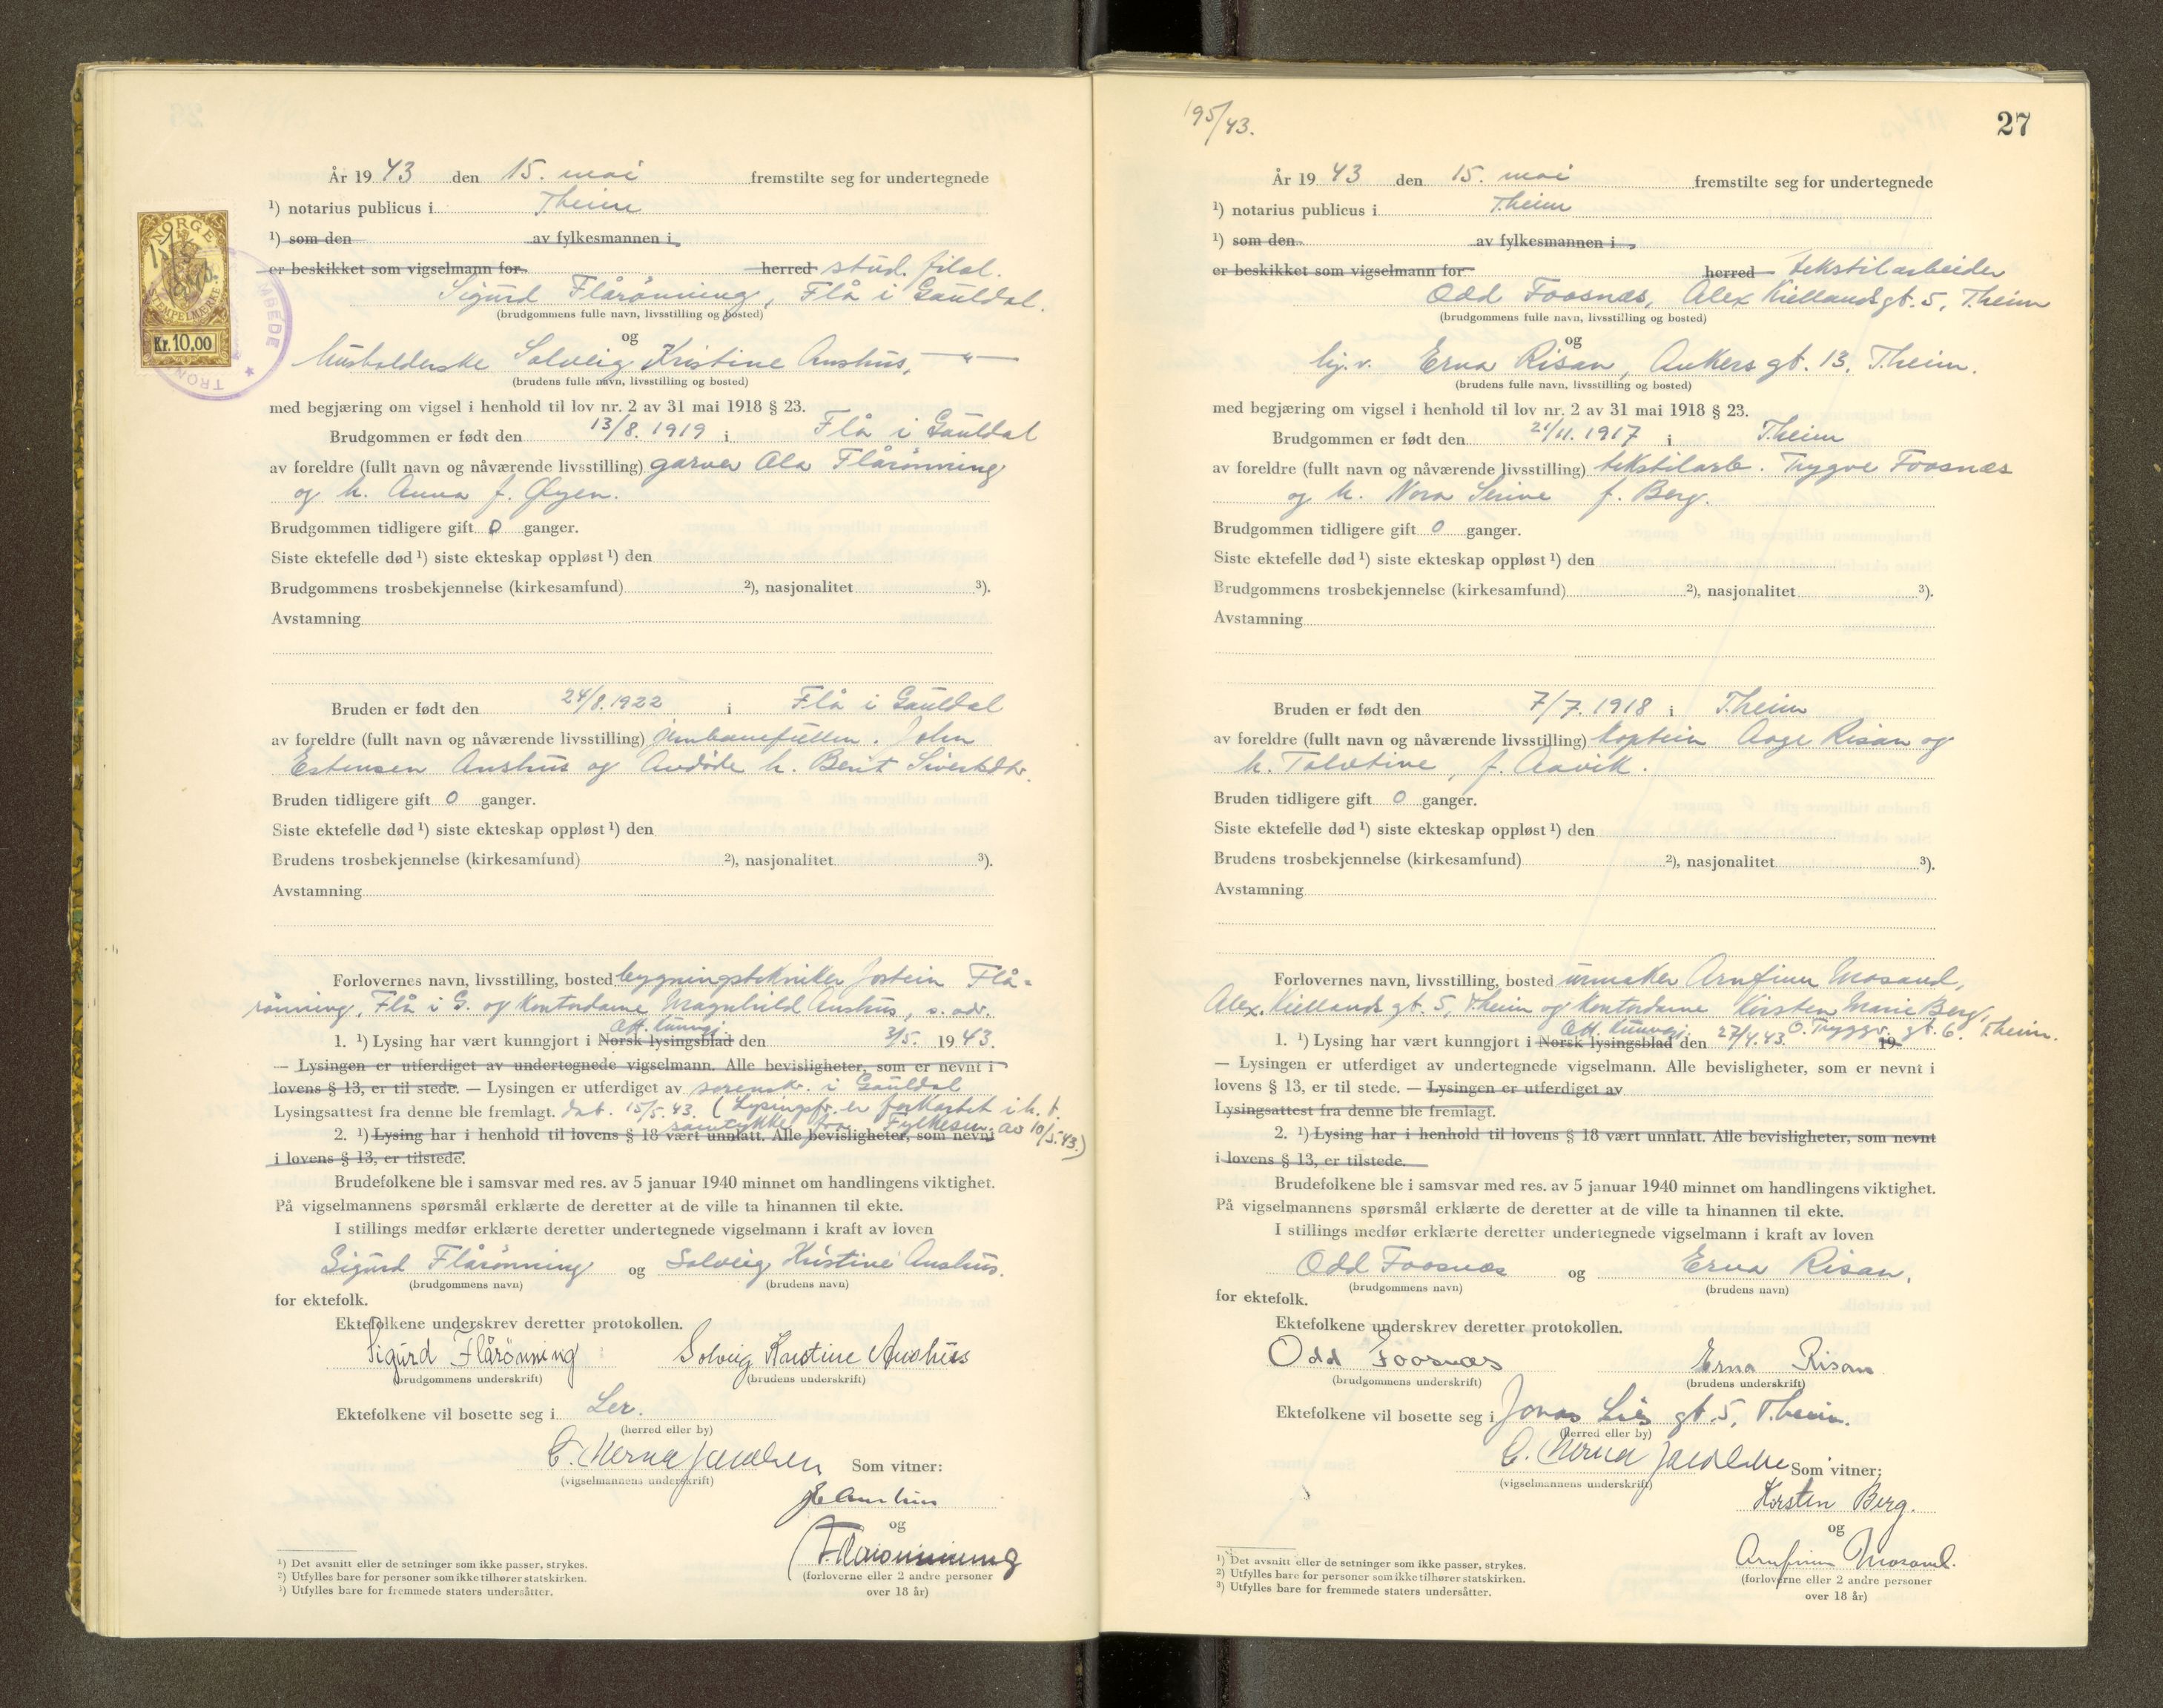 År 19 43 den 15. mai fremstilte seg for undertegnede
¹) notarius publicus i T.heim
¹) som den av fylkesmannen i
er beskikket som vigselmann for herred stud. filol.
Sigurd Flårønning, Flå i Gauldal.
(brudgommens fulle navn, livsstilling og bosted)
og
husholderske Solveig Kristine Aushus, — " —
(brudens fulle navn, livsstilling og bosted)
med begjæring om vigsel i henhold til lov nr. 2 av 31 mai 1918 § 23.
Brudgommen er født den 13/8. 1919 i Flå i Gauldal
av foreldre (fullt navn og nåværende livsstilling) garver Ola Flårønning
og h. Anna f. Øyen.
Brudgommen tidligere gift 0 ganger.
Siste ektefelle død ¹) siste ekteskap oppløst ¹) den
Brudgommens trosbekjennelse (kirkesamfund) ²), nasjonalitet ³).
Avstamning
Bruden er født den 24/8. 1922 i Flå i Gauldal
av foreldre (fullt navn og nåværende livsstilling) John
Estensen Aushus og avdøde h. Berit Sivertsdtr.
Bruden tidligere gift 0 ganger.
Siste ektefelle død ¹) siste ekteskap oppløst ¹) den
Brudens trosbekjennelse (kirkesamfund) ²), nasjonalitet ³).
Avstamning
Forlovernes navn, livsstilling, bosted bygningstekniker Jostein Flå-
rønning, Flå i G. og kontordame Magnhild Aushus, s. adr.
Off. kunngj.
1. ¹) Lysing har vært kunngjort i Norsk lysingsblad den 3/5. 19 43.
— Lysingen er utferdiget av undertegnede vigselmann. Alle bevisligheter, som er nevnt i
lovens § 13, er til stede. — Lysingen er utferdiget av sorenskr. i Gauldal
Lysingsattest fra denne ble fremlagt. dat. 15/5. 43. (Lysingsfr. er forkortet i h. t.
samtykke fra Fylkesm. av 10/5-43.)
2. ¹) Lysing har i henhold til lovens § 18 vært unnlatt. Alle bevisligheter, som nevnt
i lovens § 13, er tilstede.
Brudefolkene ble i samsvar med res. av 5 januar 1940 minnet om handlingens viktighet.
På vigselmannens spørsmål erklærte de deretter at de ville ta hinannen til ekte.
I stillings medfør erklærte deretter undertegnede vigselmann i kraft av loven
Sigurd Flårønning og Solveig Kristine Aushus.
(brudgommens navn) (brudens navn)
for ektefolk.
Ektefolkene underskrev deretter protokollen.
Sigurd Flårønning Solveig Kristine Aushus
(brudgommens underskrift) (brudens underskrift)
Ektefolkene vil bosette seg i Ler.
(herred eller by)
C. Herna Jacobsen Som vitner:
(vigselmannens underskrift)
Aushus
og
Flårønning
(forloverne eller 2 andre personer
over 18 år)
¹) Det avsnitt eller de setninger som ikke passer, strykes.
²) Utfylles bare for personer som ikke tilhører statskirken.
³) Utfylles bare for fremmede staters undersåtter.
NORGE
STEMPELMERKE
Kr. 10,00
195/43.
27
År 19 43 den 15. mai fremstilte seg for undertegnede
¹) notarius publicus i T.heim
¹) som den av fylkesmannen i
er beskikket som vigselmann for herred tekstilarbeider
Odd Foosnæs, Alex Kiellands gt. 5, T.heim
(brudgommens fulle navn, livsstilling og bosted)
og
hj. v. Erna Risan, Ankers gt. 13, T.heim.
(brudens fulle navn, livsstilling og bosted)
med begjæring om vigsel i henhold til lov nr. 2 av 31 mai 1918 § 23.
Brudgommen er født den 21/11. 1917 i T.heim
av foreldre (fullt navn og nåværende livsstilling) tekstilarb. Trygve Foosnæs
og h. Nora Serine f. Berg.
Brudgommen tidligere gift 0 ganger.
Siste ektefelle død ¹) siste ekteskap oppløst ¹) den
Brudgommens trosbekjennelse (kirkesamfund) ²), nasjonalitet ³).
Avstamning
Bruden er født den 7/7. 1918 i T.heim
av foreldre (fullt navn og nåværende livsstilling) kaptein Aage Risan og
h. Talette, f. Aavik.
Bruden tidligere gift 0 ganger.
Siste ektefelle død ¹) siste ekteskap oppløst ¹) den
Brudens trosbekjennelse (kirkesamfund) ²), nasjonalitet ³).
Avstamning
Forlovernes navn, livsstilling, bosted urmaker Arnfinn Mosand,
Alex. Kiellands gt. 5, T.heim og kontordame Kirsten Marie Berg,
Off. kunngj. O. Tryggv. gt. 6. T.heim.
1. ¹) Lysing har vært kunngjort i Norsk lysingsblad den 27/4.43. 19
— Lysingen er utferdiget av undertegnede vigselmann. Alle bevisligheter, som er nevnt i
lovens § 13, er til stede. — Lysingen er utferdiget av
Lysingsattest fra denne ble fremlagt.
2. ¹) Lysing har i henhold til lovens § 18 vært unnlatt. Alle bevisligheter, som nevnt
i lovens § 13, er tilstede.
Brudefolkene ble i samsvar med res. av 5 januar 1940 minnet om handlingens viktighet.
På vigselmannens spørsmål erklærte de deretter at de ville ta hinannen til ekte.
I stillings medfør erklærte deretter undertegnede vigselmann i kraft av loven
Odd Foosnæs og Erna Risan.
(brudgommens navn) (brudens navn)
for ektefolk.
Ektefolkene underskrev deretter protokollen.
Odd Foosnæs Erna Risan
(brudgommens underskrift) (brudens underskrift)
Ektefolkene vil bosette seg i Jonas Lies gt. 5, T.heim.
(herred eller by)
C. Herna Jacobsen Som vitner:
(vigselmannens underskrift)
Kirsten Berg.
og
Arnfinn Mosand.
(forloverne eller 2 andre personer
over 18 år)
¹) Det avsnitt eller de setninger som ikke passer, strykes.
²) Utfylles bare for personer som ikke tilhører statskirken.
³) Utfylles bare for fremmede staters undersåtter.